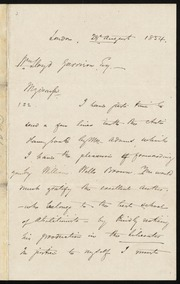 London, 24 August 1854.
Wm Lloyd Garrison Esq —
My dear Sir
I have just time to
send a few lines with the
Pamphlets by Mr. Adams, which
I have the pleasure of forwarding
you by William Wells Brown. You
would greatly the excellent Author
who belongs to the best school
of Abolitionists by kindly noticing
his production in the Liberator
In justice to myself I must